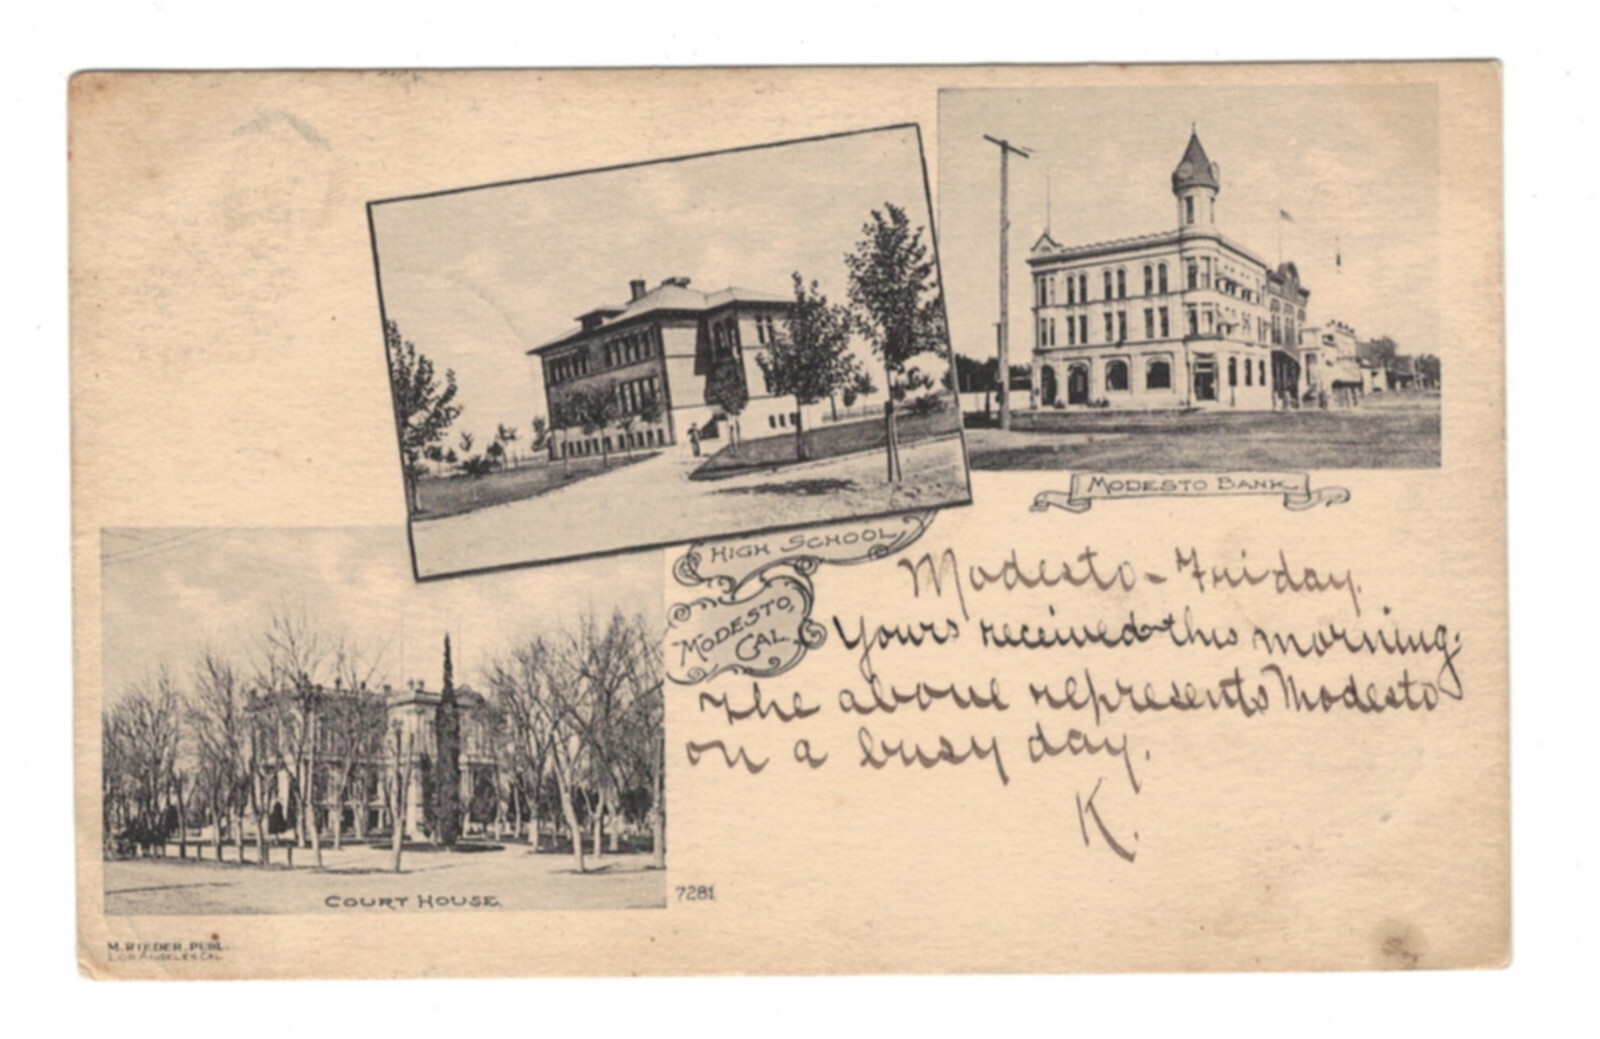 MODESTO BANK.
HIGH SCHOOL,
MODESTO,
CAL.
Modesto - Friday.
Yours received this morning.
The above represents Modesto
on a busy day.
K.
COURT HOUSE.
7281.
M. RIEDER, PUBL.
LOS ANGELES, CAL.